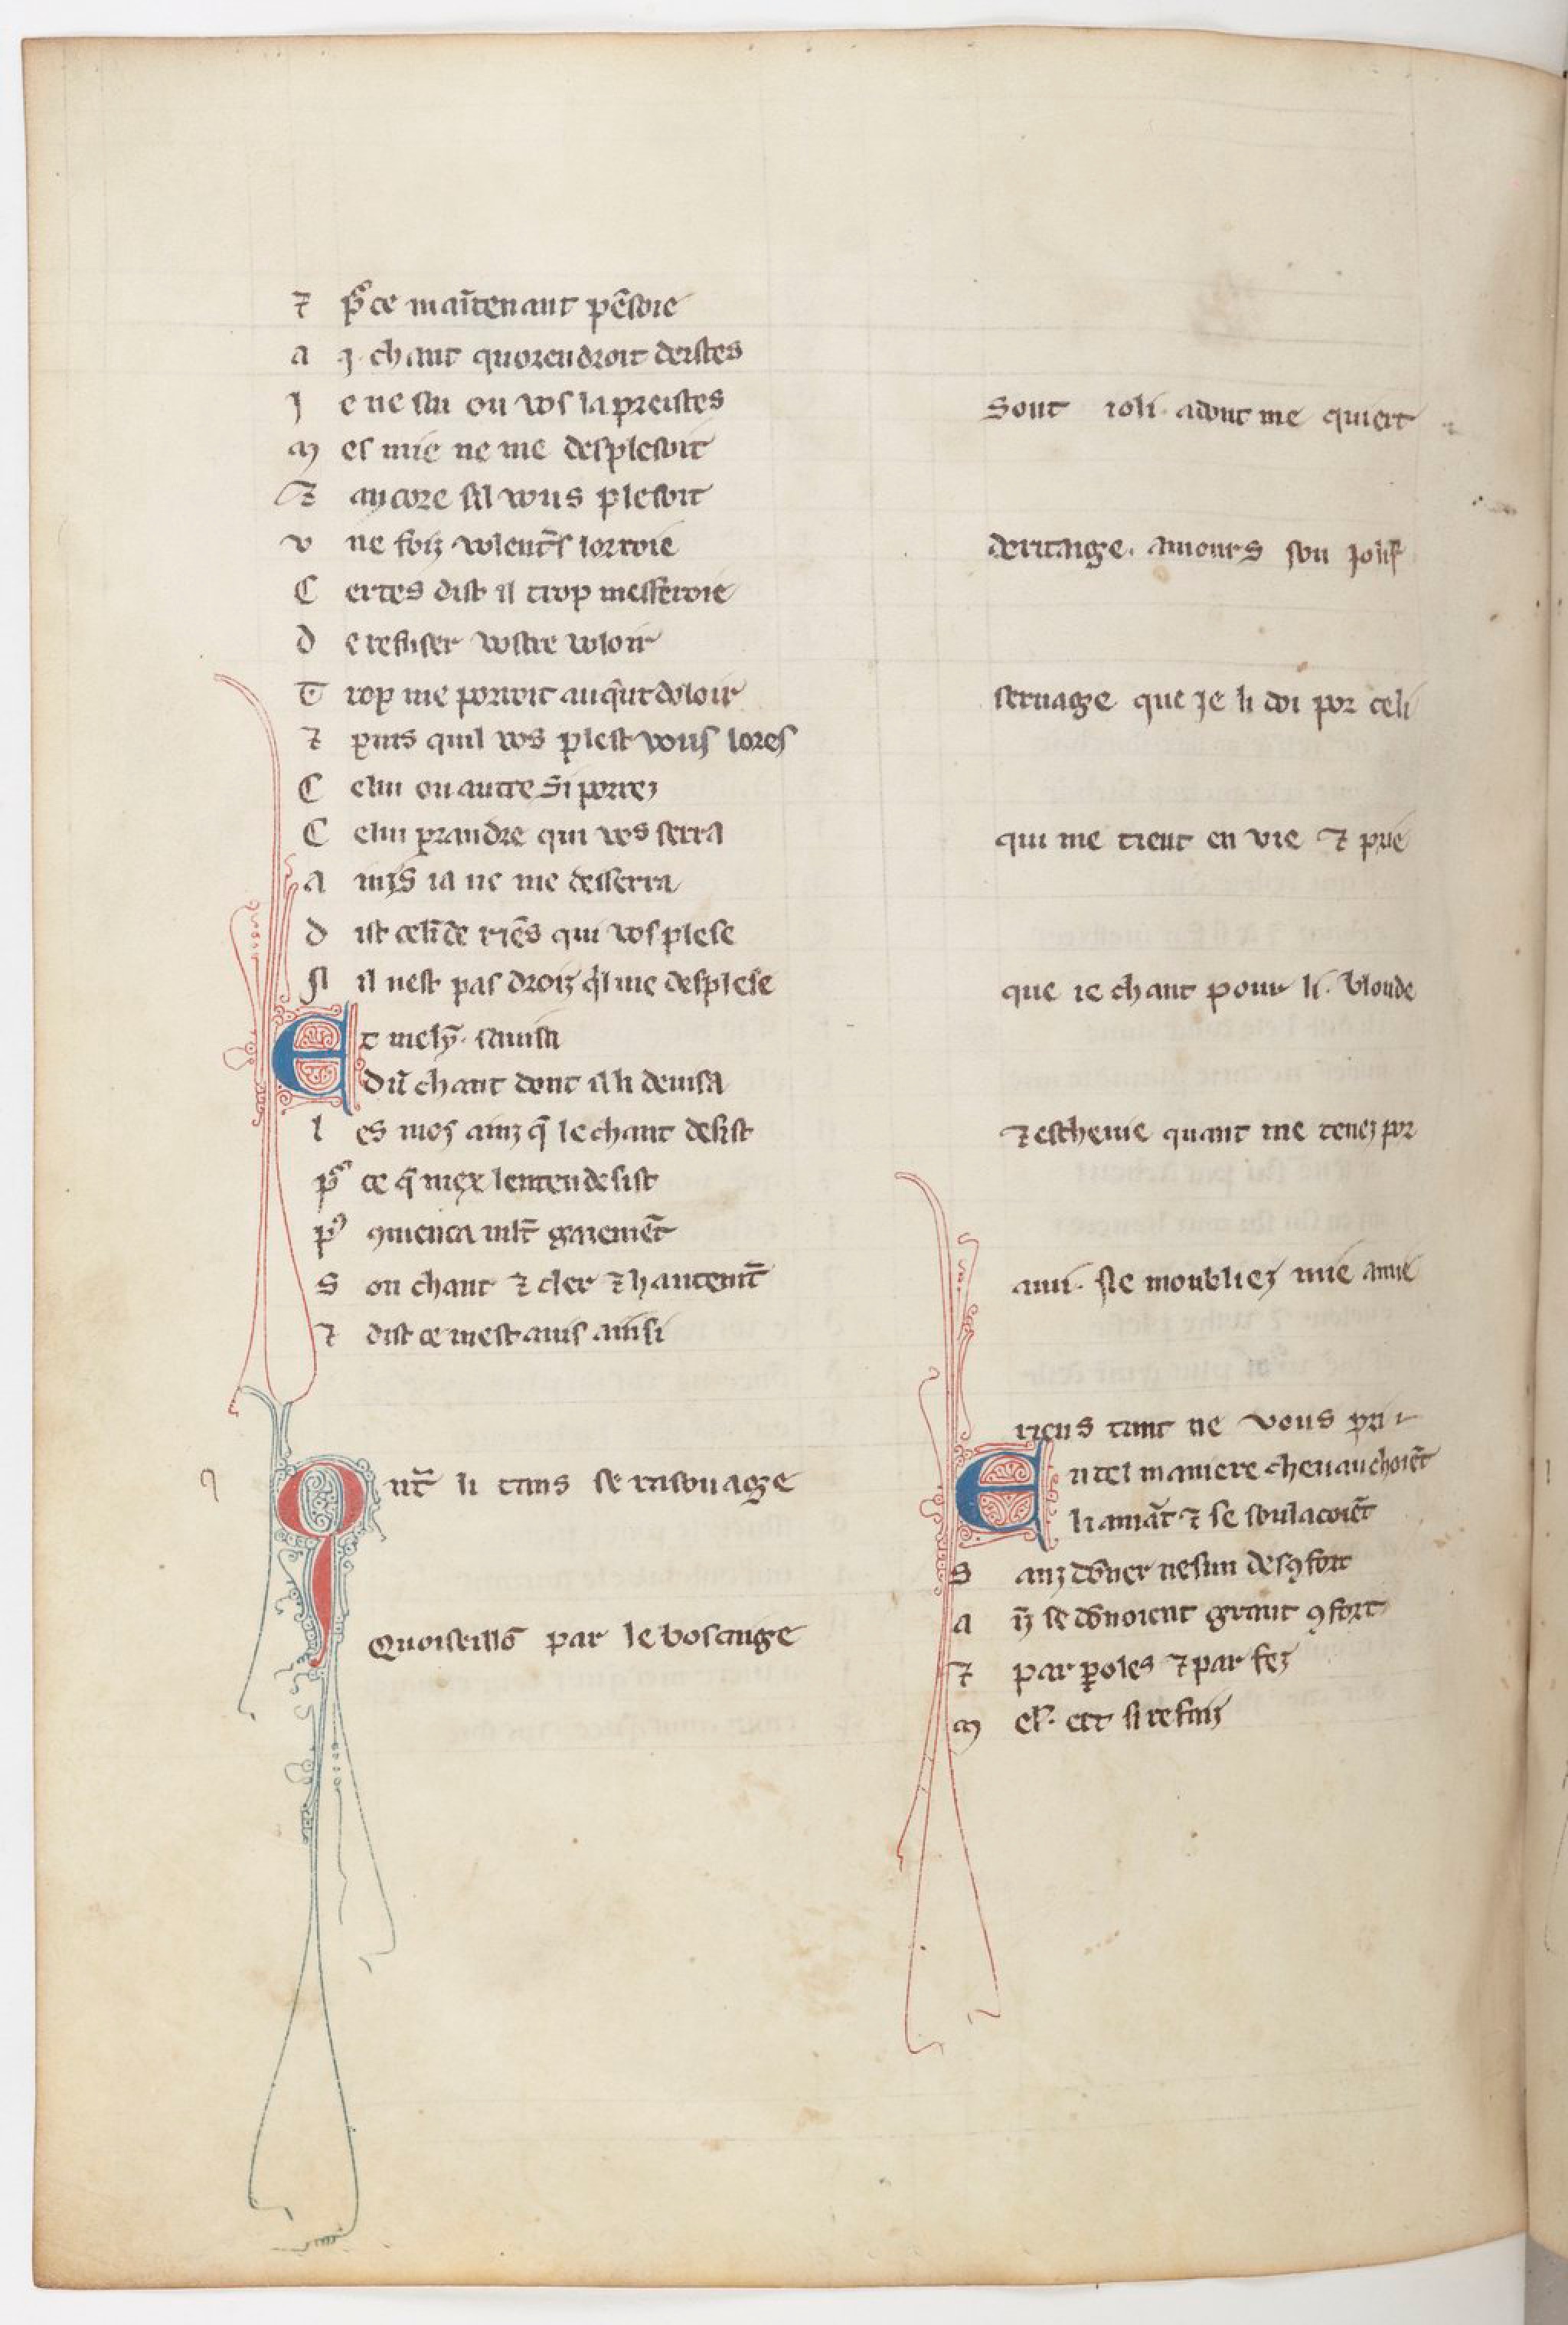 ⁊ p̄ ce mait̄enant pēsoie
a .i. chant quorendroit deistes
j e ne sai ou vos la preistes
m es mie ne me desplesoit
⁊ ancore sil vous plesoit
v ne foiz volent̄s lorroie
C ertes dist il trop mesferoie
d e refuser vostre voloir
T rop me porroit
⁊ puis quil vos plest vous lores
C elui ou autre Si porrez
C elui prandre qui vos serra
a mis ia ne me desserra
d ist celi de riēs qui vos plese
si il nest pas droiz q̄l me desplese
Et melȳ. sauisa
dū chant dont il li deuisa
l es moz ainz q̄ le chant desist
p̄ ce q̄ miex lentendesist
p⁹ ꝯmenca mlt̄ gaiemēt
s on chant ⁊ cler ⁊ hautem̄t
⁊ dist ce mest auis ainsi
Qnt̄ li tans se rasouage
Quoiseillō par le boscaige
Sont ioli. adont me quiert
deritaige. amours son jolif
seruage que je li doi por celi
qui me tient en vie ⁊ prie
que ie chant pour li. blonde
⁊ escheuie quant me tenez por
ami. Ne moubliez mie amie
riens tant ne vous pri
En tel maniere cheuauchoiēt
li amāt ⁊ se soulacoiēt
s anz dōner nesun desꝯfort
a īz se dōnoient grant ꝯfort
⁊ par ꝑoles ⁊ par fez
m el. ert si refaiz